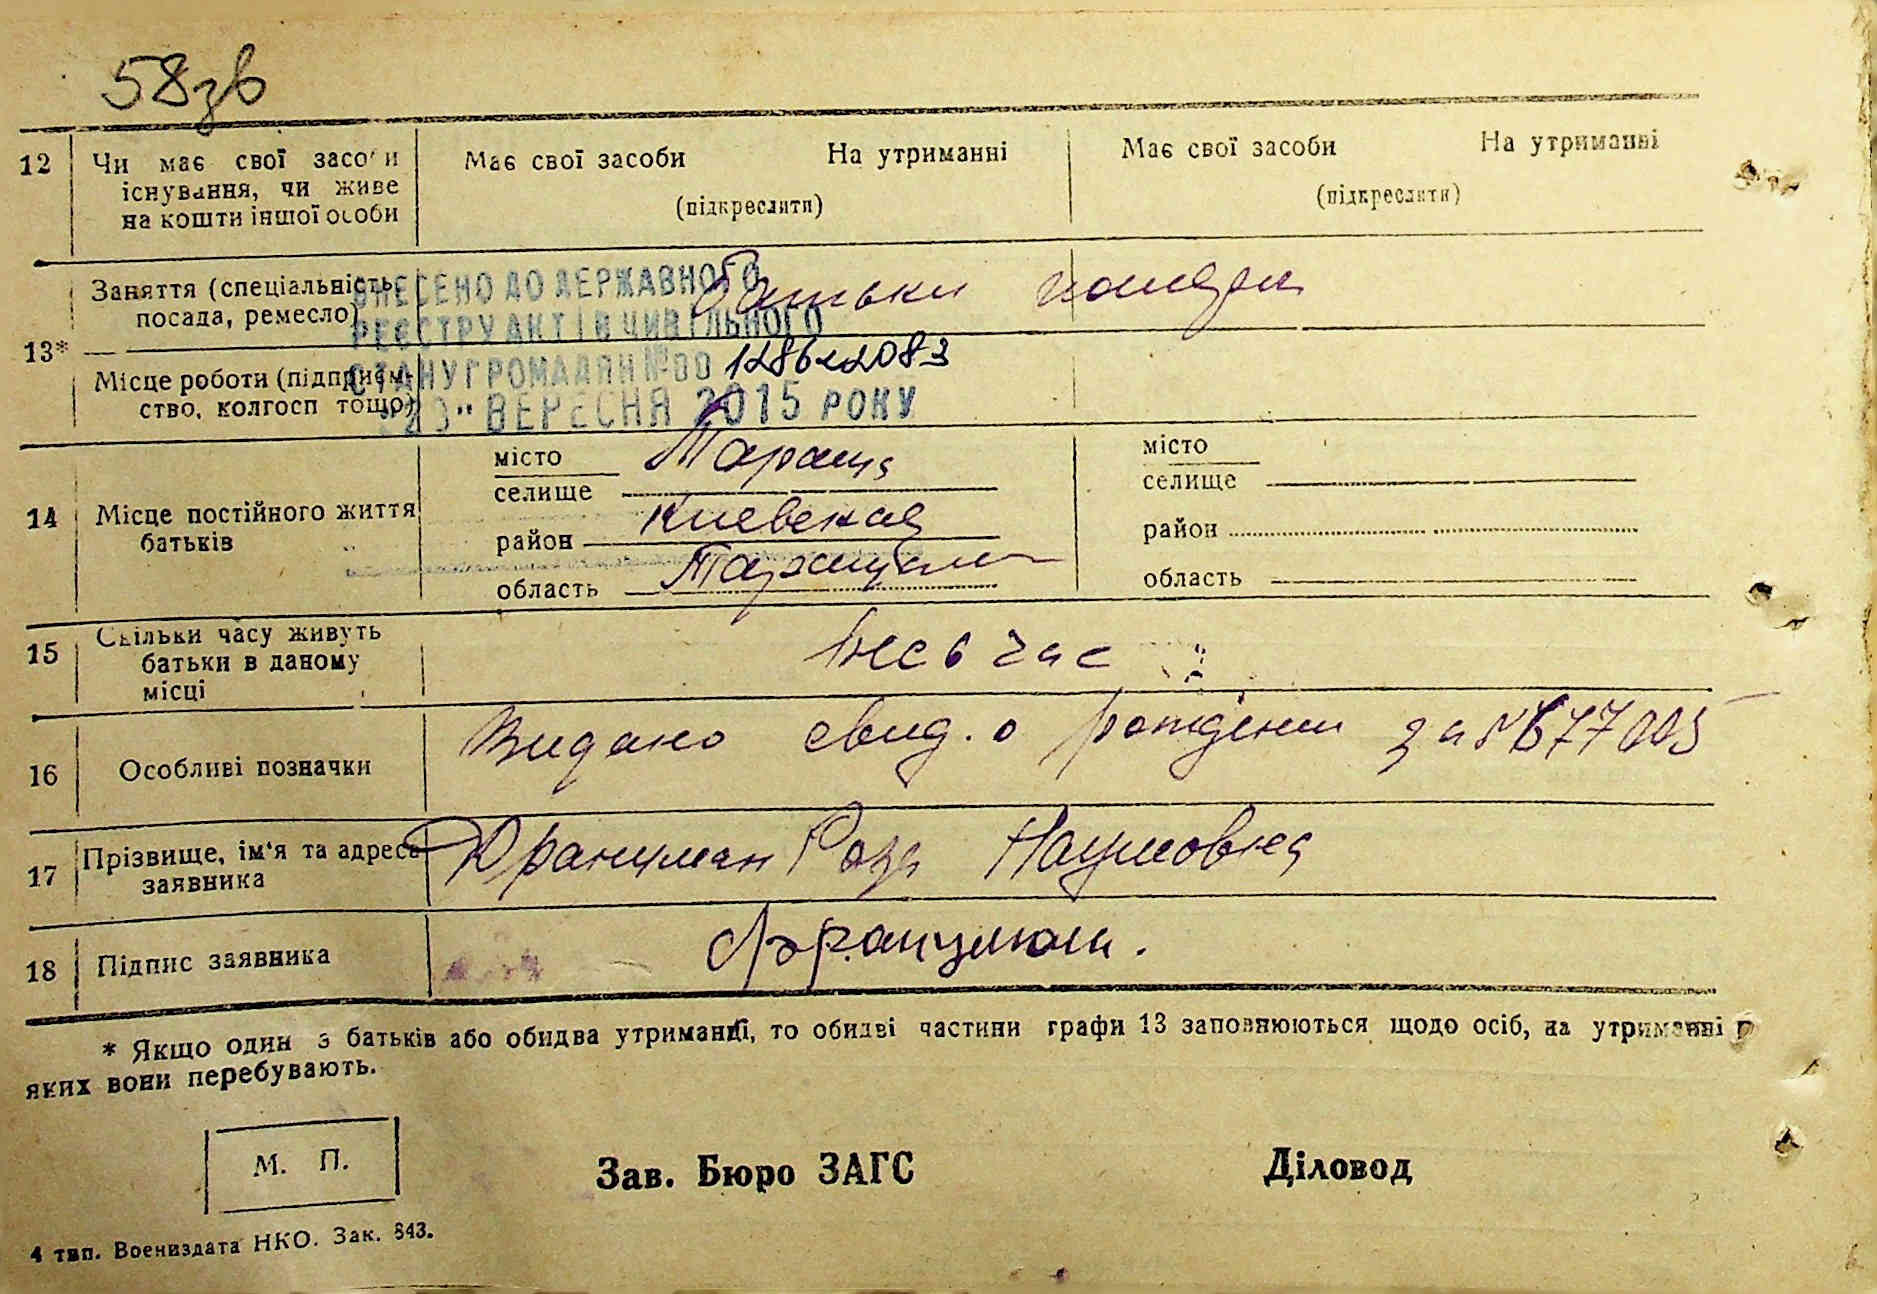 58зв
12 Чи має свої засоби Має свої засоби На утриманні Має свої засоби На утриманні
існування, чи живе (підкреслити) (підкреслити)
на кошти іншої особи
13* Заняття (спеціальність, батьки
посада, ремесло)
ВНЕСЕНО ДО ДЕРЖАВНОГО
РЕЄСТРУ АКТІВ ЦИВІЛЬНОГО
СТАНУ ГРОМАДЯН №00 128622083
ВЕРЕСНЯ 2015 РОКУ
Місце роботи (підприєм-
ство, колгосп тощо)
14 Місце постійного життя
батьків
місто Тараща
селище
район Киевская
область
місто
селище
район
область
15 Скільки часу живуть
батьки в даному
місці
весь час
16 Особливі позначки Видано свид. о рождении за №
17 Прізвище, ім'я та адреса
заявника
Дранцман Роза Наумовна
18 Підпис заявника
* Якщо один з батьків або обидва утриманці, то обидві частини графи 13 заповнюються щодо осіб, на утриманні
яких вони перебувають.
М. П. Зав. Бюро ЗАГС Діловод
4 тип. Воениздата НКО. Зак. 843.